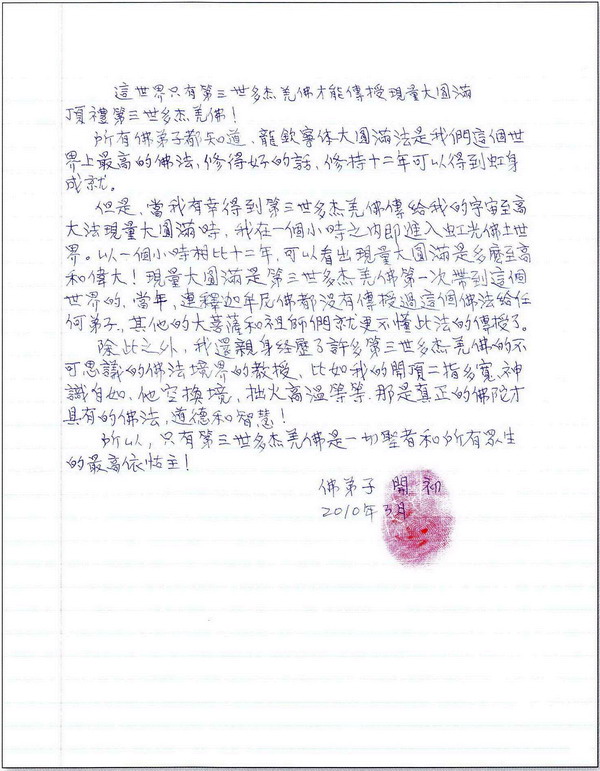 這世界只有第三世多杰羌佛才能傳授現量大圓滿
頂禮第三世多杰羌佛！
所有佛弟子都知道，龍欽寧体大圓滿法是我們這個世
界上最高的佛法，修得好的話，修持十二年可以得到虹身
成就。
但是，當我有幸得到第三世多杰羌佛傳給我的宇宙至高
大法現量大圓滿時，我在一個小時之內即進入虹光佛土世
界。以一個小時相比十二年，可以看出現量大圓滿是多麼至高
和偉大！現量大圓滿是第三世多杰羌佛第一次帶到這個
世界的，當年，連釋迦牟尼佛都沒有傳授過這個佛法給任
何弟子，其他的大菩薩和祖師們就更不懂此法的傳授了。
除此之外，我還親身經歷了許多第三世多杰羌佛的不
可思議的佛法境界的教授，比如我的開頂二指多寬，神
識自如，他空換境，拙火高溫等等，那是真正的佛陀才
具有的佛法，道德和智慧！
所以，只有第三世多杰羌佛是一切聖者和所有眾生
的最高依怙主！
佛弟子 開初
2010年3月